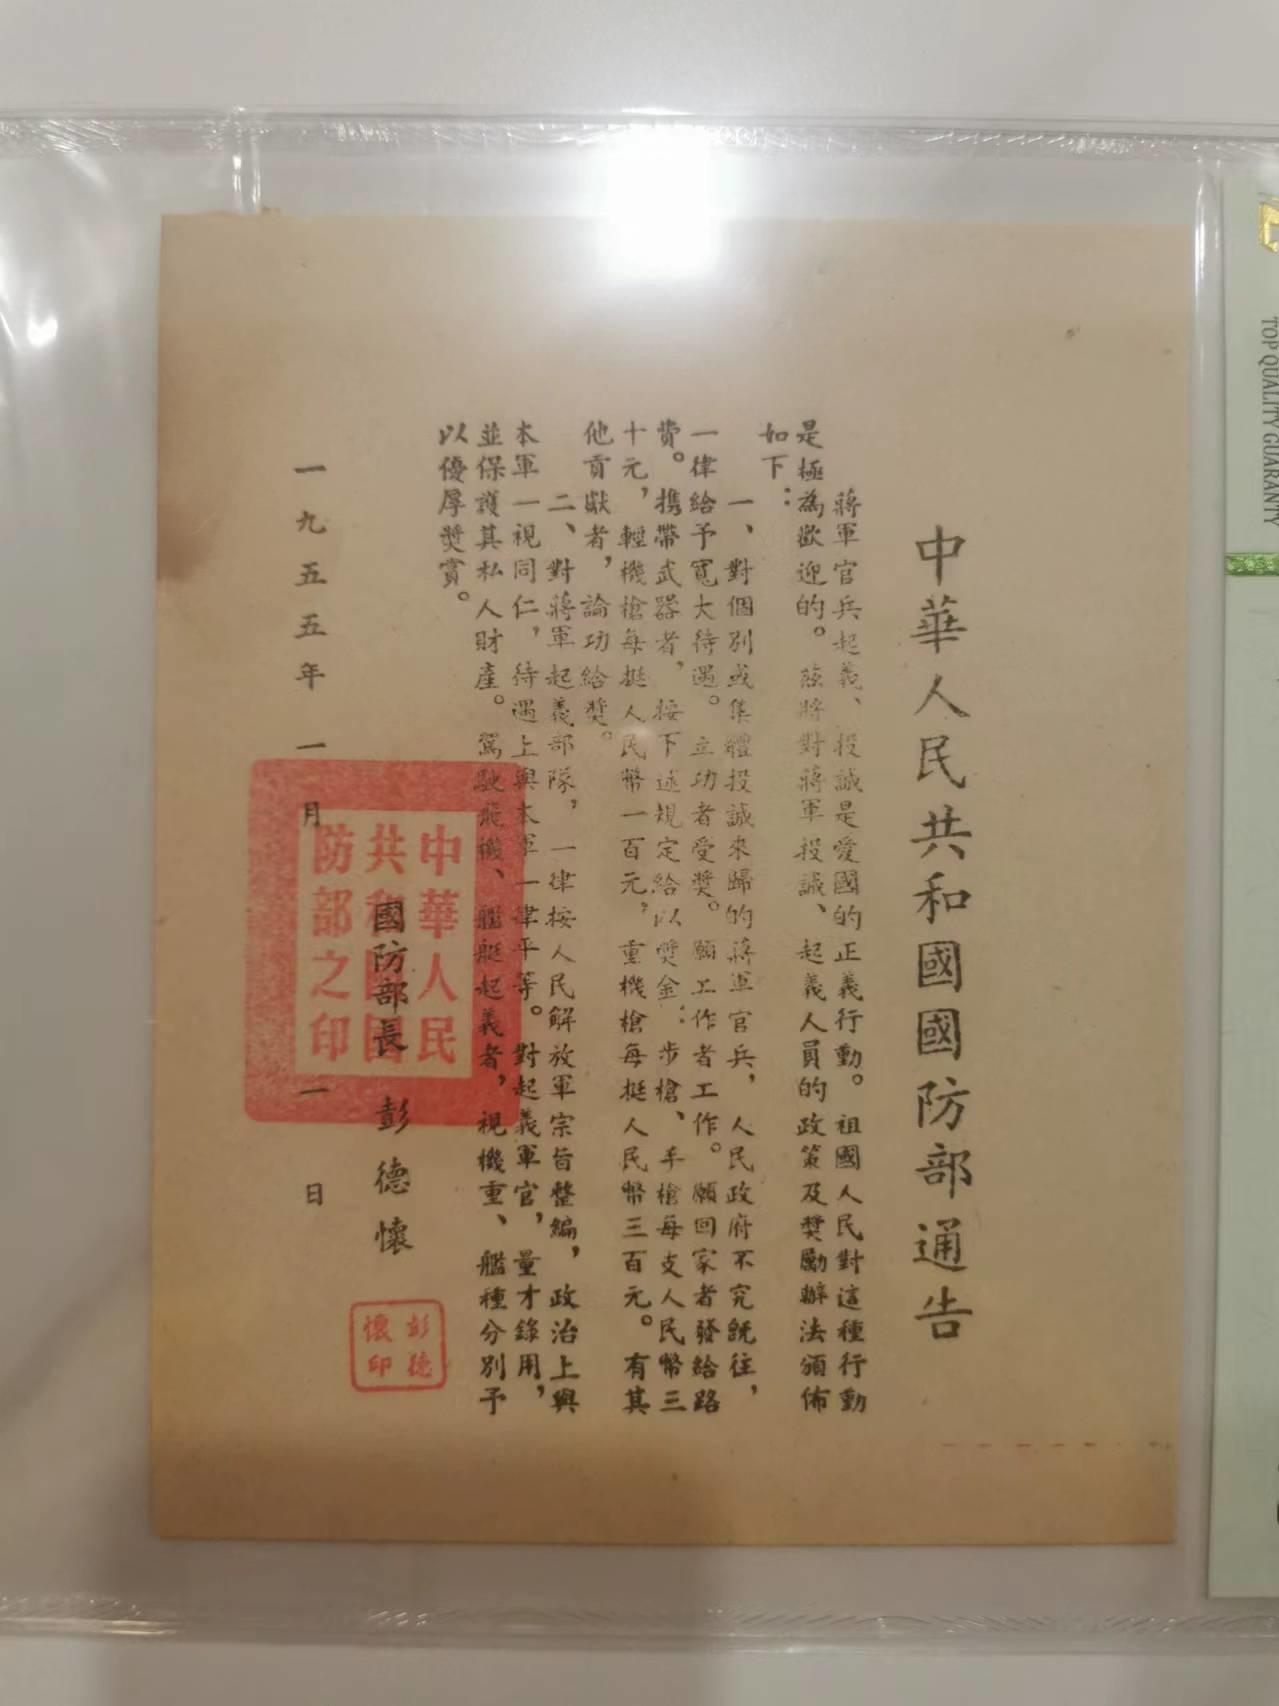 中華人民共和國國防部通告
蔣軍官兵起義、投誠是愛國的正義行動。祖國人民對這種行動
是極為歡迎的。茲將對蔣軍投誠、起義人員的政策及獎勵辦法頒佈
如下：
一、對個別或集體投誠來歸的蔣軍官兵，人民政府不究既往，
一律給予寬大待遇。立功者受獎。願工作者工作。願回家者發給路
費。携帶武器者，按下述規定給以獎金：步槍、手槍每支人民幣三
十元，輕機槍每挺人民幣一百元，重機槍每挺人民幣三百元。有其
他貢獻者，論功給獎。
二、對蔣軍起義部隊，一律按人民解放軍宗旨整編，政治上與
本軍一視同仁，待遇上與本軍一律平等。對起義軍官，量才錄用，
並保護其私人財產。駕駛飛機、艦艇起義者，視機重、艦種分別予
以優厚獎賞。
國防部長 彭德懷
彭德
懷印
一九五五年一月一日
中華人民
共和國國
防部之印
TOP QUALITY GUARANTY